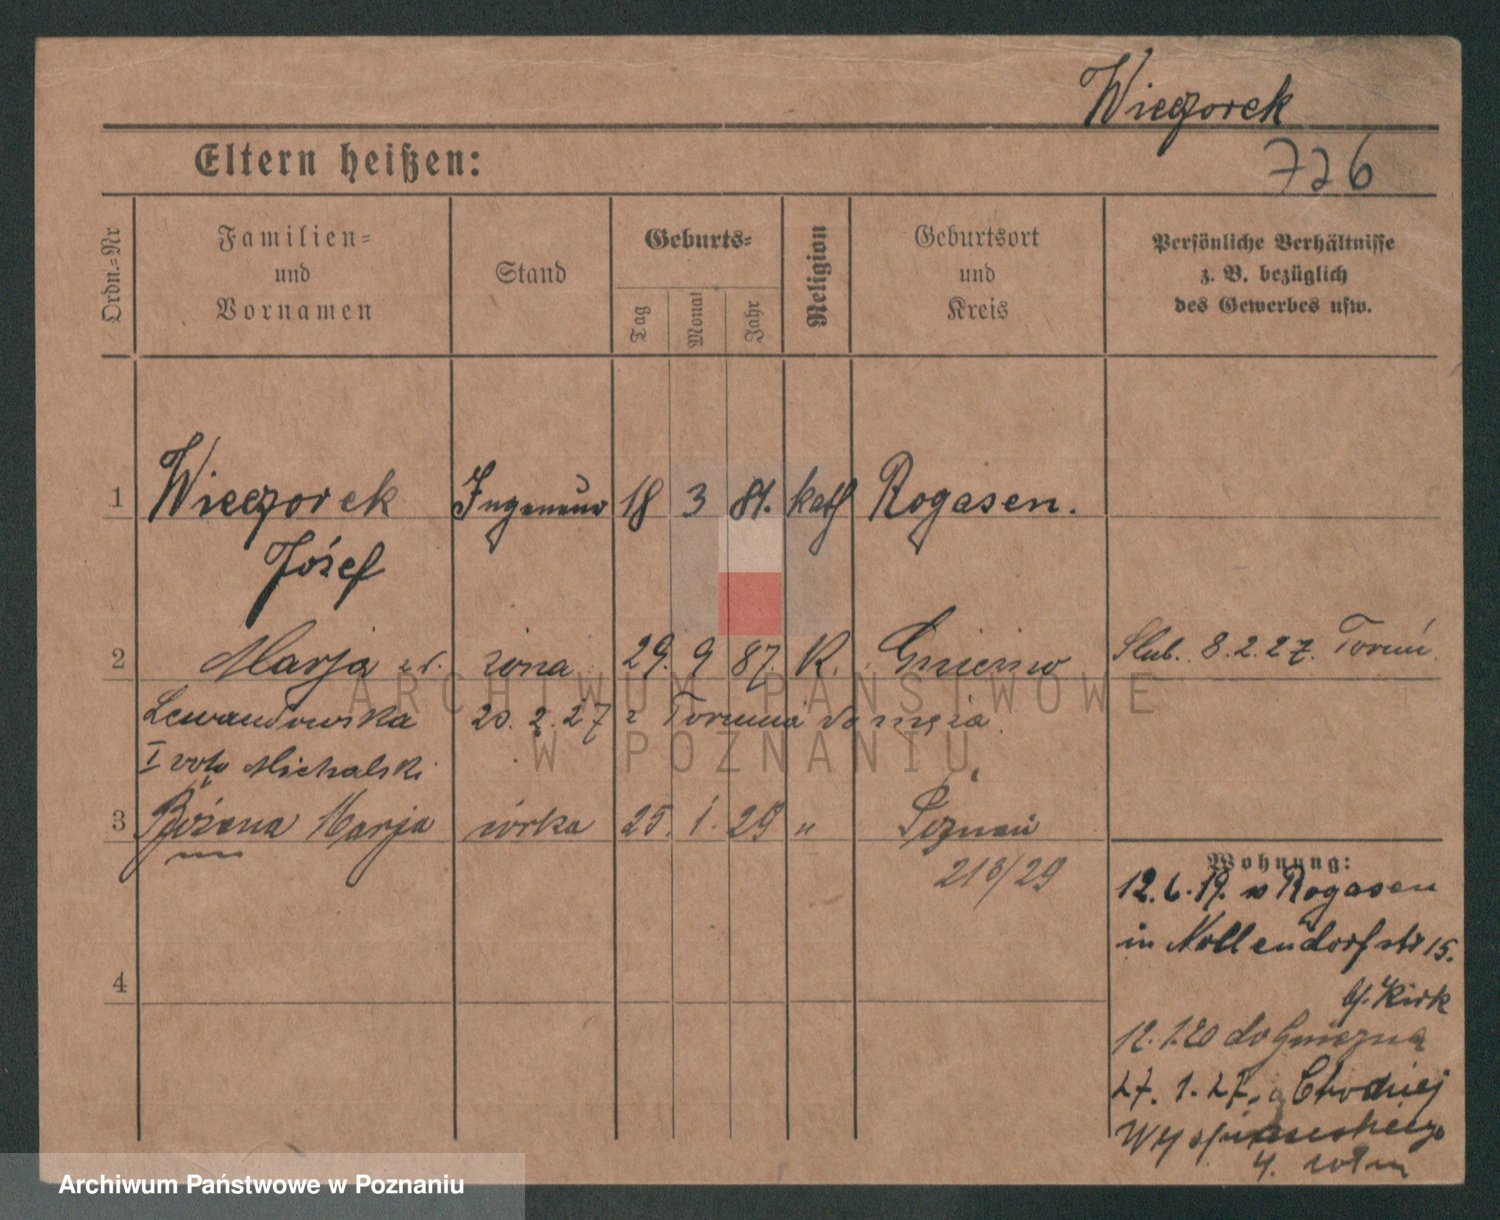 Wieczorek
Eltern heißen:
726
Ordn.=Nr
Familien=
und
Vornamen
Stand
Geburts=
Tag
Monat
Jahr
Religion
Geburtsort
und
Kreis
Persönliche Verhältnisse
z. B. bezüglich
des Gewerbes usw.
1 Wieczorek Ingenieur 18 3 81. kath Rogasen.
Józef
2 Marja z d. żona 29. 9 87. K. Gniewo Ślub. 8.2.27. Toruń
Lewandowska 20. 2. 27 z Torunia do męża
I voto Michalski
3 Bożena Marja córka 25. 1. 29 " Poznań
213/29
Wohnung:
12. 6. 19. v Rogasen
in Nollendorfstr 15.
b/. Kirk
4
12. 1. 20 do Gniezna
27. 1. 27. z
4.
ARCHIWUM PAŃSTWOWE
W POZNANIU
Archiwum Państwowe w Poznaniu